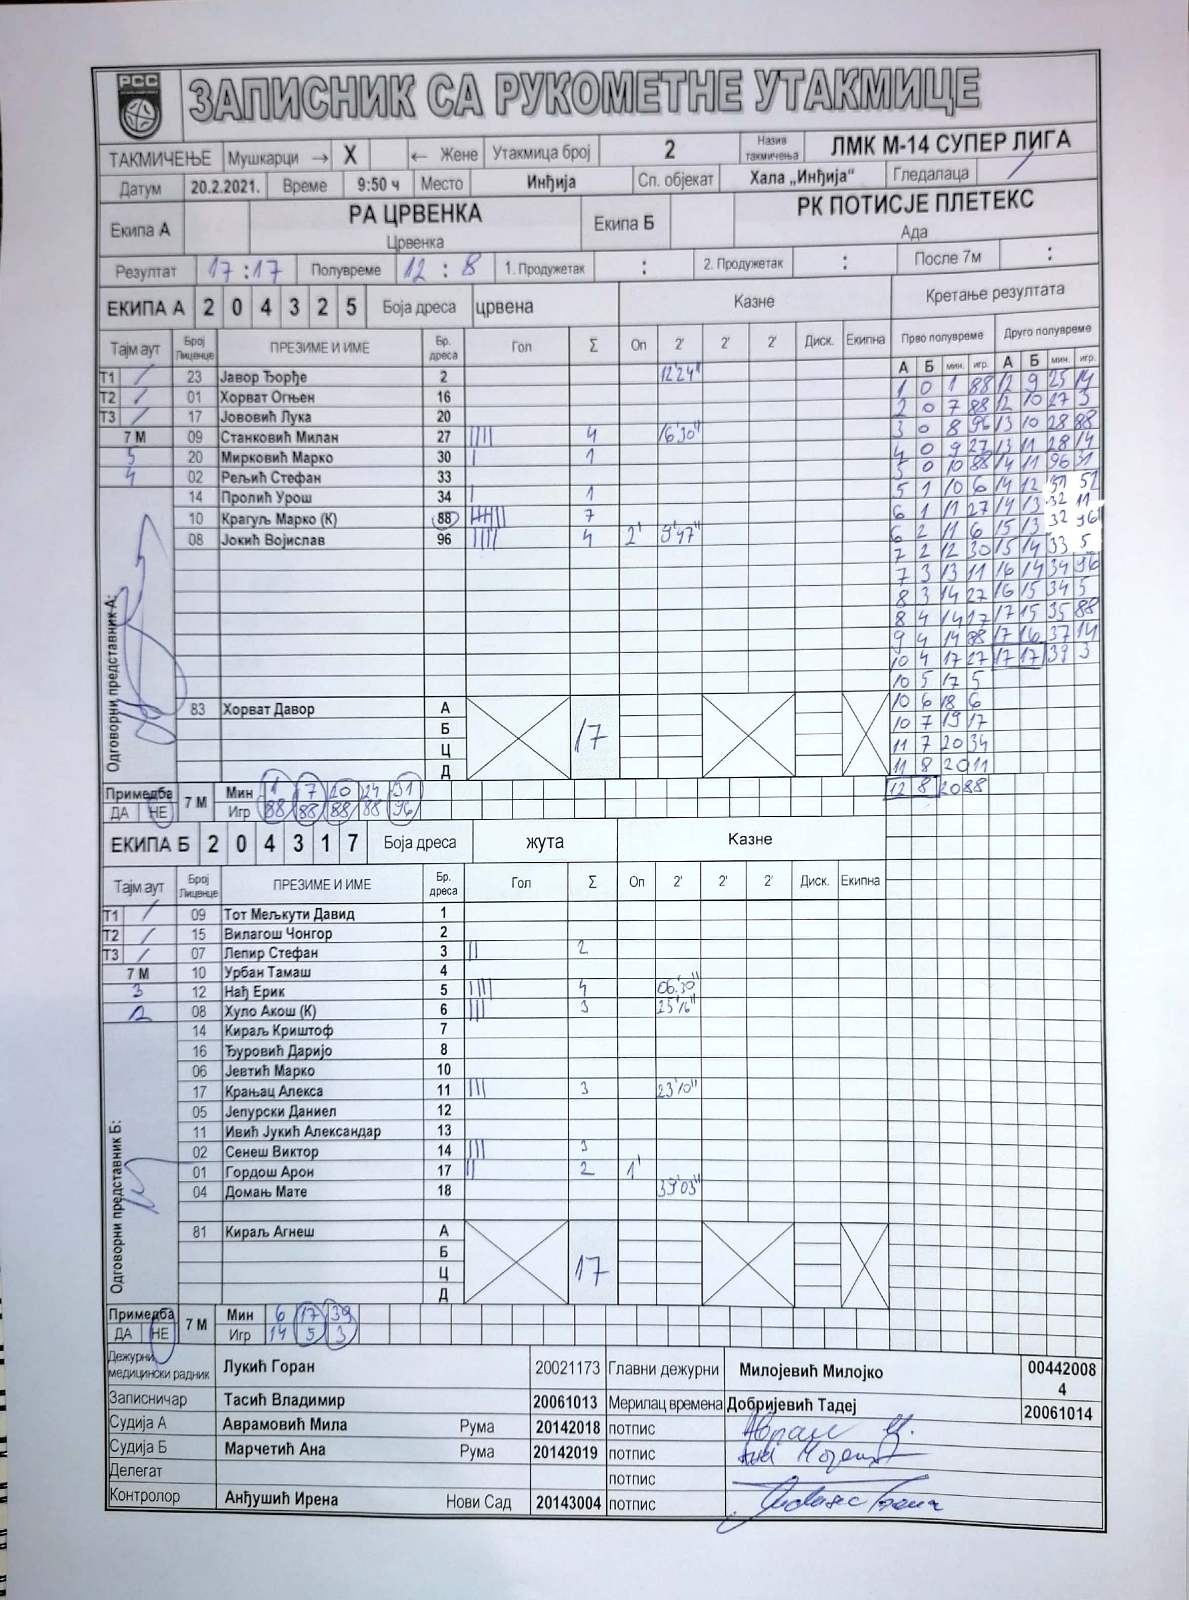 РСС
ЗАПИСНИК СА РУКОМЕТНЕ УТАКМИЦЕ
ТАКМИЧЕЊЕ Мушкарци → X ← Жене Утакмица број 2 Назив такмичења ЛМК М-14 СУПЕР ЛИГА
Датум 20.2.2021. Време 9:50 ч Место Инђија Сп. објекат Хала „Инђија“ Гледалаца /
Екипа А РА ЦРВЕНКА Црвенка Екипа Б РК ПОТИСЈЕ ПЛЕТЕКС Ада
Резултат 17:17 Полувреме 12:8 1. Продужетак : 2. Продужетак : После 7м :
ЕКИПА А 2 0 4 3 2 5 Боја дреса црвена Казне Кретање резултата
Тајм аут Број Лиценце ПРЕЗИМЕ И ИМЕ Бр. дреса Гол Σ Оп 2' 2' 2' Диск. Екипна Прво полувреме Друго полувреме
А Б мин. игр. А Б мин. игр.
Т1 / 23 Јавор Ђорђе 2 12'24"
Т2 / 01 Хорват Огњен 16
Т3 / 17 Јововић Лука 20
7 М 09 Станковић Милан 27 IIII 4 16'30"
5 20 Мирковић Марко 30 I 1
4 02 Рељић Стефан 33
14 Пролић Урош 34 I 1
10 Крагуљ Марко (К) 88 7
08 Јокић Војислав 96 IIII 4 2' 9'47"
1 0 1 88 12 9 25 14
2 0 7 88 12 10 27 3
3 0 8 96 13 10 28 88
4 0 9 27 13 11 28 14
5 0 10 88 14 11 96 31
5 1 10 6 14 12 31 51
6 1 11 27 14 13 32 11
6 2 11 6 15 13 32 96
7 2 12 30 15 14 33 5
7 3 13 11 16 14 34 96
8 3 14 27 16 15 34 5
8 4 14 17 17 15 35 88
9 4 14 88 17 16 37 14
10 4 17 27 17 17 39 3
10 5 17 5
10 6 18 6
10 7 19 17
11 7 20 34
11 8 20 11
12 8 20 88
Одговорни представник А:
83 Хорват Давор А
Б 17
Ц
Д
Примедба ДА НЕ 7 М Мин 1 7 20 24 31
Игр 88 88 88 88 96
ЕКИПА Б 2 0 4 3 1 7 Боја дреса жута Казне
Тајм аут Број Лиценце ПРЕЗИМЕ И ИМЕ Бр. дреса Гол Σ Оп 2' 2' 2' Диск. Екипна
Т1 / 09 Тот Мељкути Давид 1
Т2 / 15 Вилагош Чонгор 2
Т3 / 07 Лепир Стефан 3 II 2
7 М 10 Урбан Тамаш 4
3 12 Нађ Ерик 5 IIII 4 06'30"
2 08 Хуло Акош (К) 6 III 3 25'16"
14 Кираљ Криштоф 7
16 Ђуровић Даријо 8
06 Јевтић Марко 10
17 Крањац Алекса 11 III 3 23'10"
05 Јепурски Даниел 12
11 Ивић Јукић Александар 13
02 Сенеш Виктор 14 III 3
01 Гордош Арон 17 II 2 1'
04 Домањ Мате 18 39'03"
Одговорни представник Б:
81 Кираљ Агнеш А
Б
Ц 17
Д
Примедба ДА НЕ 7 М Мин 6 17 39
Игр 14 5 3
Дежурни медицински радник Лукић Горан 20021173 Главни дежурни Милојевић Милојко 004420084
Записничар Тасић Владимир 20061013 Мерилац времена Добријевић Тадеј 20061014
Судија А Аврамовић Мила Рума 20142018 потпис
Судија Б Марчетић Ана Рума 20142019 потпис
Делегат потпис
Контролор Анђушић Ирена Нови Сад 20143004 потпис